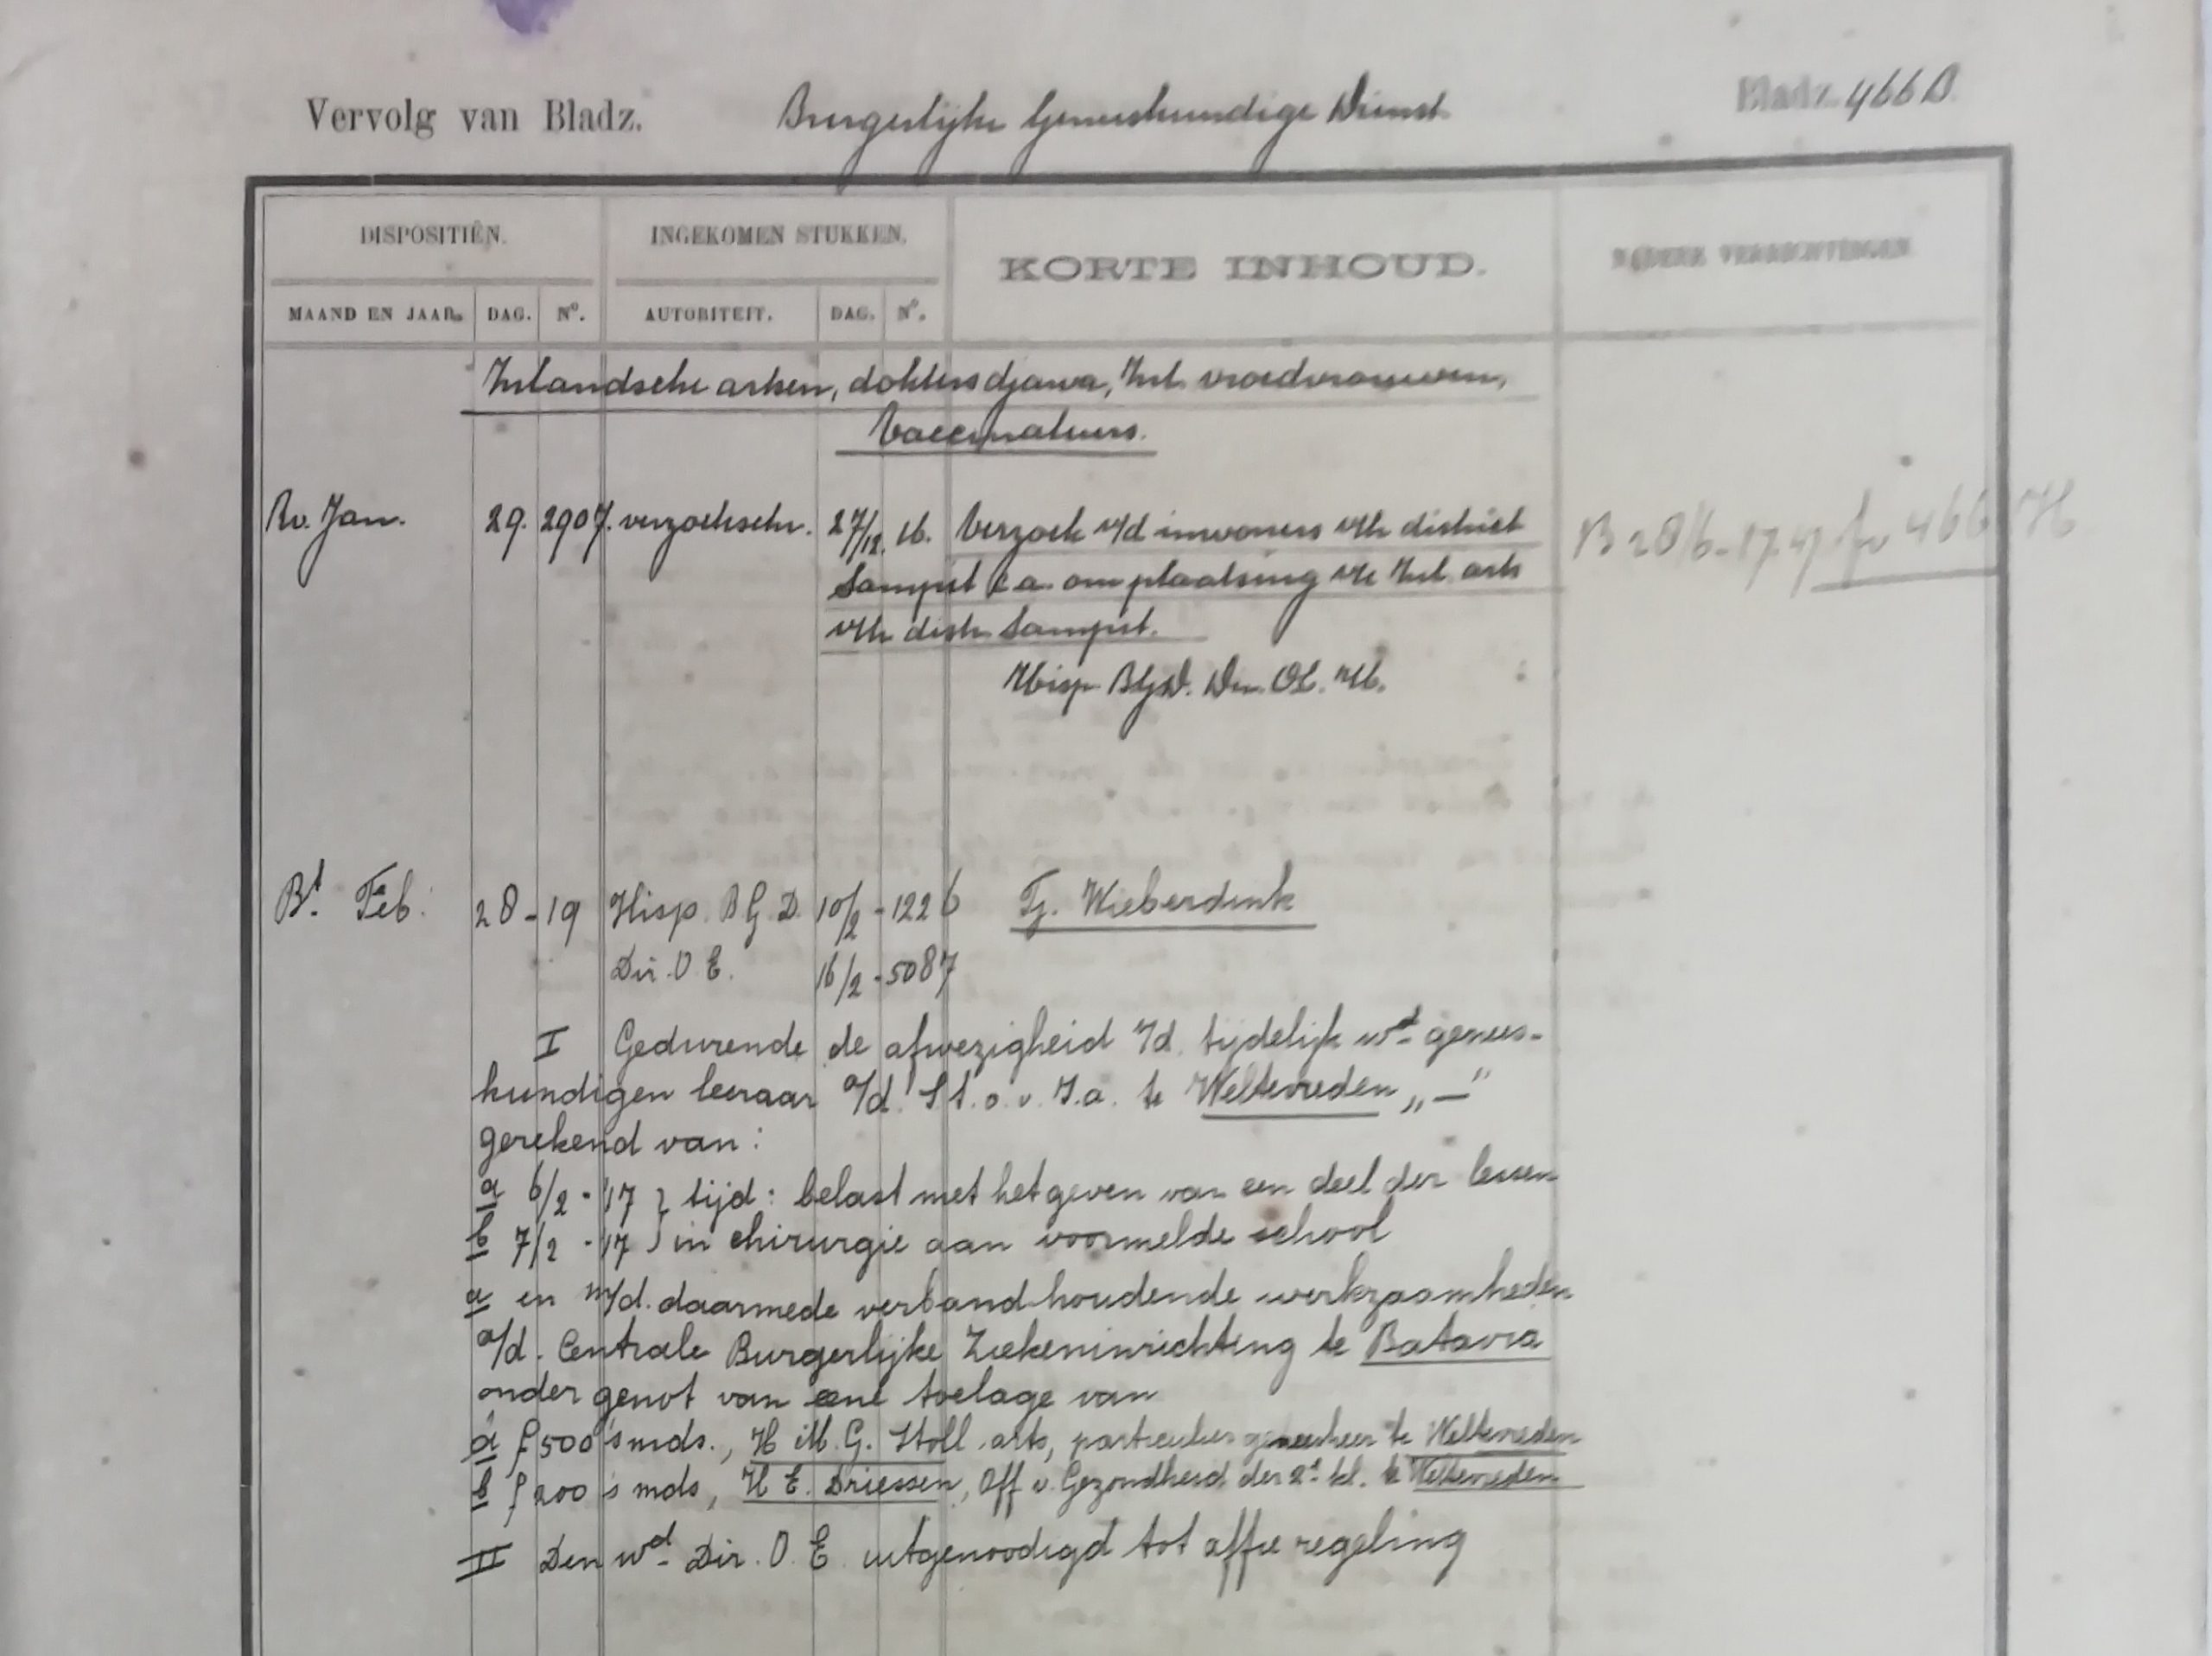 Vervolg van Bladz. Burgerlijke Geneeskundige Dienst Bladz. 466B
DISPOSITIËN. INGEKOMEN STUKKEN. KORTE INHOUD. NADERE VERRICHTINGEN
MAAND EN JAAR. DAG. No. AUTORITEIT. DAG. No.
Inlandsche artsen, dokters djawa, Inl. vroedvrouwen,
Vaccinateurs.
Rv. Jan. 29. 2907. verzoekschr. 27/12. 16. Verzoek v/d inwoners v/h district
Sampit c.a. om plaatsing v/e Inl. arts
v/h distr. Sampit.
Hisp. BGD. Dir. O&.
B 28/6-17 47 fo 466 H
Bt. Feb. 28-19 Hisp. B.G.D. 10/2-1226 Tj. Wieberdink
Dir. O E. 16/2-5087
I Gedurende de afwezigheid v/d. tijdelijk wd genees-
kundigen leeraar a/d. S t. o. v. I. a. te Weltevreden „—"
gerekend van:
a 6/2-'17 } tijd: belast met het geven van een deel der lessen
b 7/2-'17 } in chirurgie aan voormelde school
a en m/d. daarmede verband houdende werkzaamheden
a/d. Centrale Burgerlijke Ziekeninrichting te Batavia
onder genot van eene toelage van
a f 500 's mds., H M. G. Stoll arts, particulier geneesheer te Weltevreden
b f 200 's mds, H E. Driessen, Off v. Gezondheid der 2e kl. te Weltevreden
II Den wd Dir. O. E. uitgenoodigd tot affie regeling